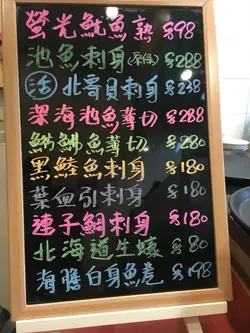 螢光魷魚 熟 $98
池魚刺身(原條) $288
活 北寄貝刺身 $238
深海池魚薄切 $288
魚薄切 $280
黑鯥魚刺身 $180
葉血引刺身 $180
連子鯛刺身 $180
北海道生蠔 $80
海膽白身魚卷 $198